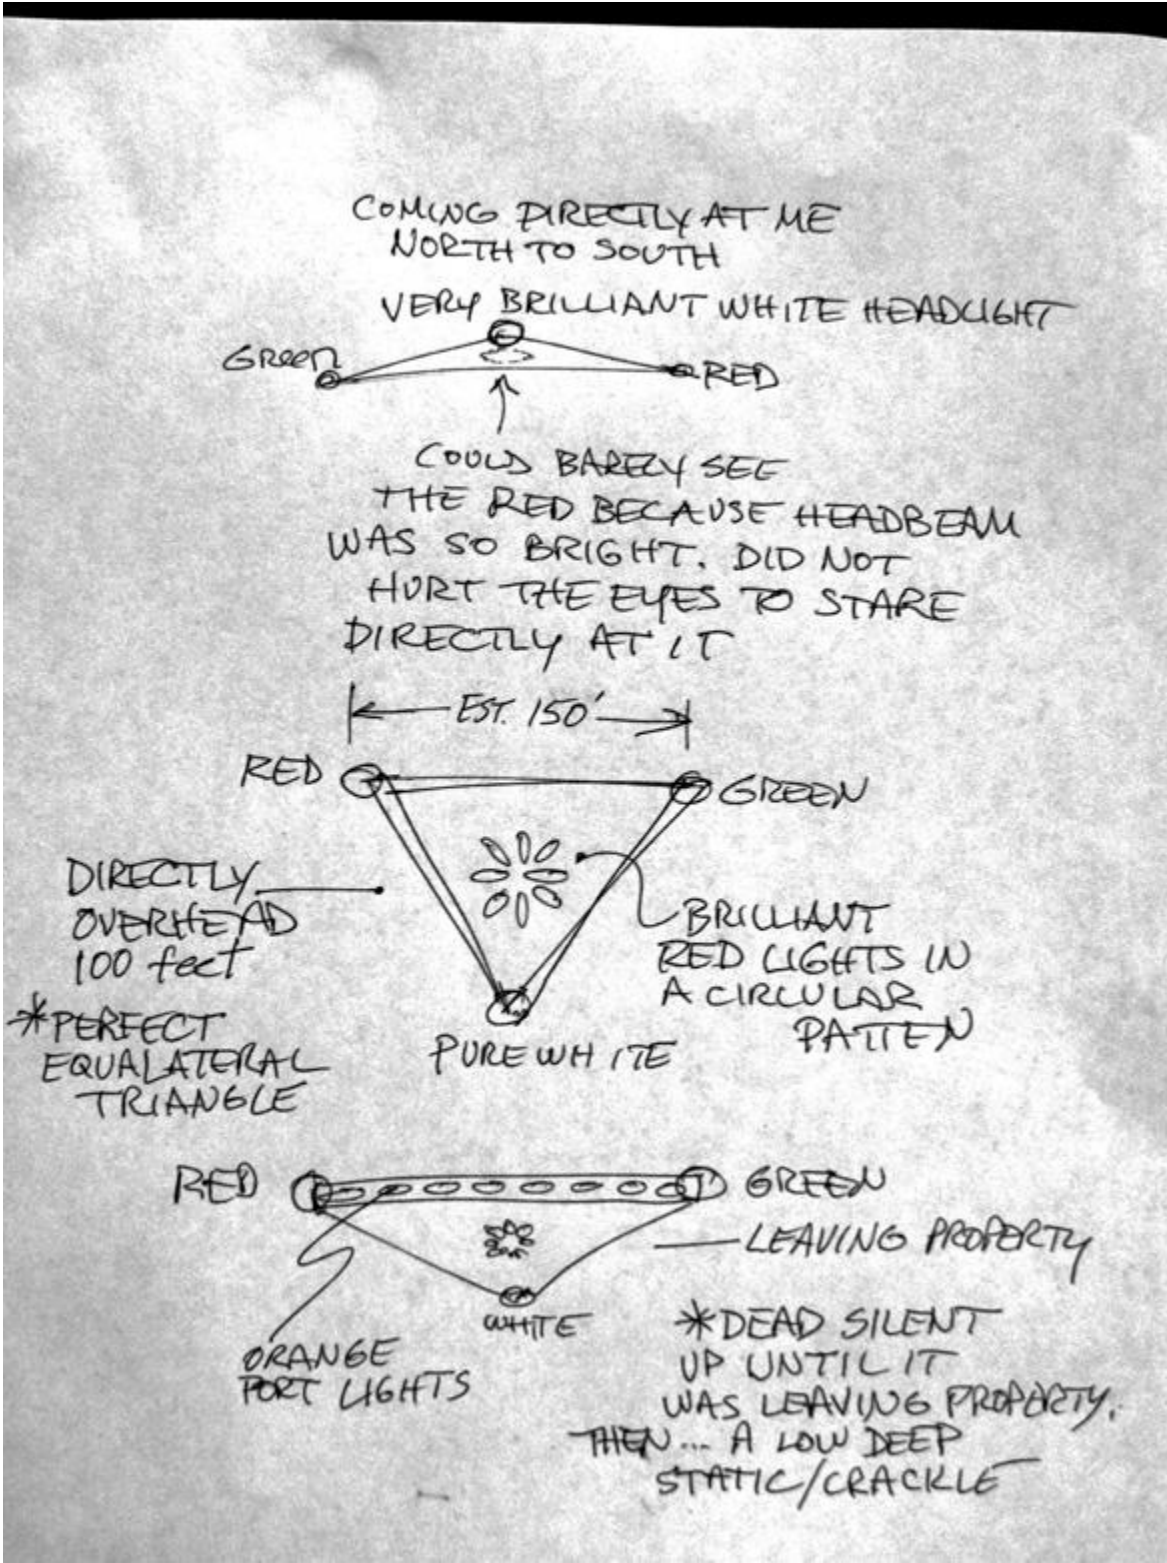 COMING DIRECTLY AT ME
NORTH TO SOUTH
VERY BRILLIANT WHITE HEADLIGHT
GREEN
RED
COULD BARELY SEE
THE RED BECAUSE HEADBEAM
WAS SO BRIGHT. DID NOT
HURT THE EYES TO STARE
DIRECTLY AT IT
EST. 150'
RED
GREEN
DIRECTLY
OVERHEAD
100 feet
*PERFECT
EQUALATERAL
TRIANGLE
BRILLIANT
RED LIGHTS IN
A CIRCULAR
PATTEN
PURE WHITE
RED
GREEN
LEAVING PROPERTY
WHITE
ORANGE
PORT LIGHTS
*DEAD SILENT
UP UNTIL IT
WAS LEAVING PROPERTY.
THEN... A LOW DEEP
STATIC/CRACKLE